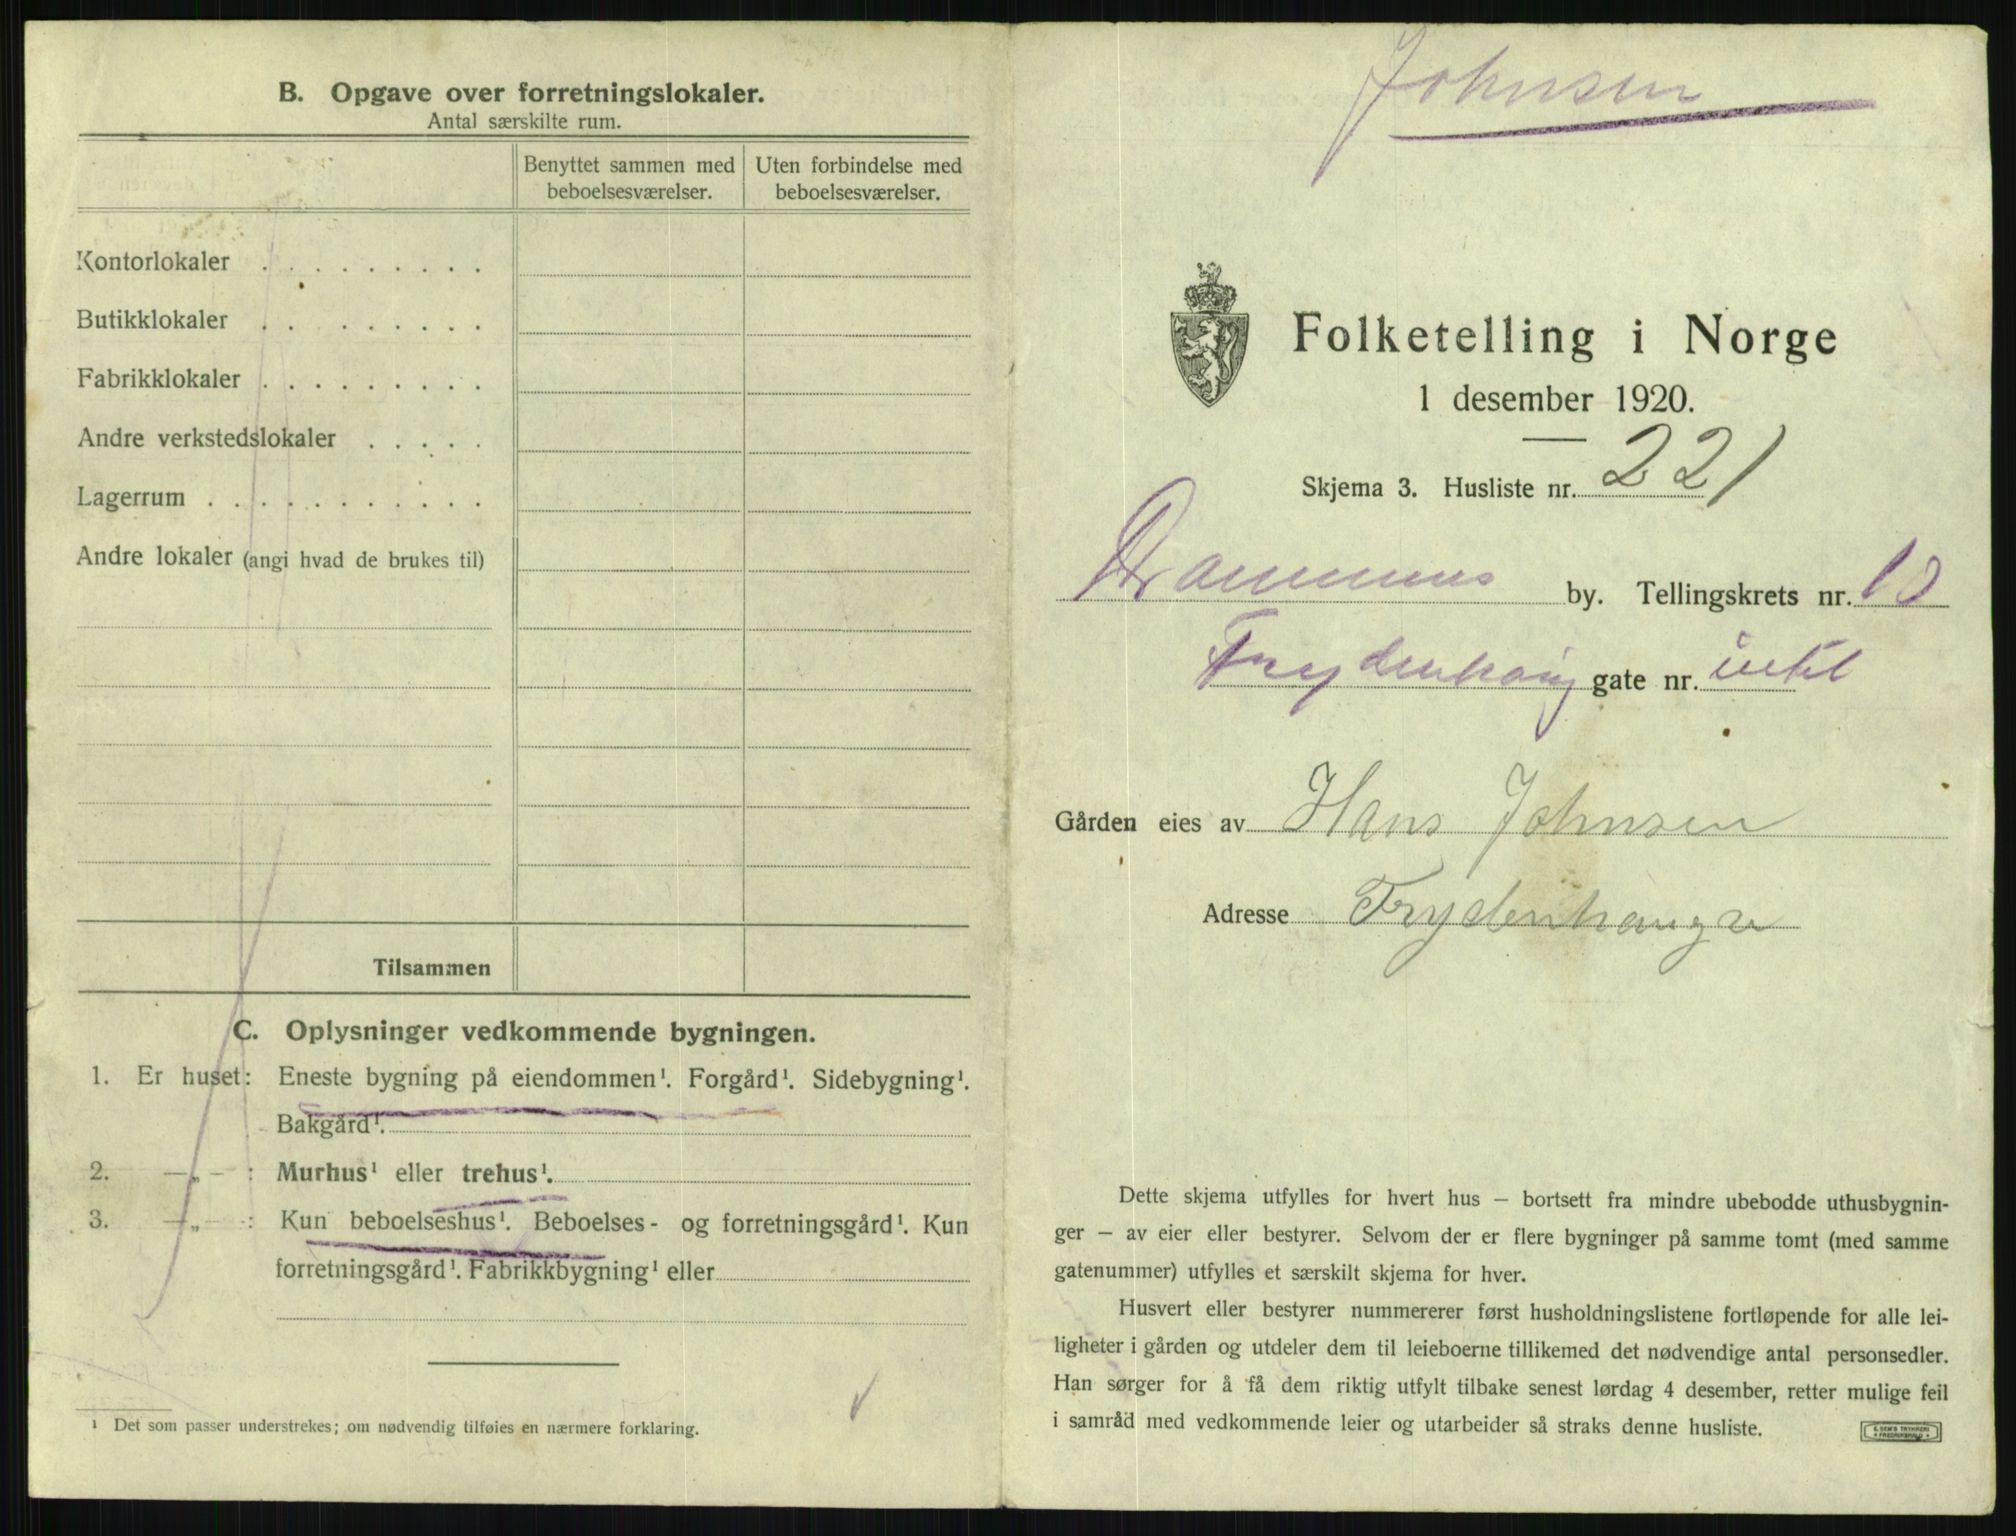 B. Opgave over forretningslokaler.
Antal særskilte rum.
Benyttet sammen med beboelsesværelser.
Uten forbindelse med beboelsesværelser.
Kontorlokaler . . . . . . . . .
Butikklokaler . . . . . . . . .
Fabrikklokaler . . . . . . . . .
Andre verkstedslokaler . . . . .
Lagerrum . . . . . . . . . . .
Andre lokaler (angi hvad de brukes til)
Tilsammen
C. Oplysninger vedkommende bygningen.
1. Er huset: Eneste bygning på eiendommen¹. Forgård¹. Sidebygning¹.
Bakgård¹.
2. —„— : Murhus¹ eller trehus¹.
3. —„— : Kun beboelseshus¹. Beboelses- og forretningsgård¹. Kun
forretningsgård¹. Fabrikkbygning¹ eller
¹ Det som passer understrekes; om nødvendig tilføies en nærmere forklaring.
Johnsen
Folketelling i Norge
1 desember 1920.
Skjema 3. Husliste nr. 221
Drammens by. Tellingskrets nr. 10
Frydenhaug gate nr.
Gården eies av Hans Johnsen
Adresse Frydenhaug
Dette skjema utfylles for hvert hus — bortsett fra mindre ubebodde uthusbygnin-
ger — av eier eller bestyrer. Selvom der er flere bygninger på samme tomt (med samme
gatenummer) utfylles et særskilt skjema for hver.
Husvert eller bestyrer nummererer først husholdningslistene fortløpende for alle lei-
ligheter i gården og utdeler dem til leieboerne tillikemed det nødvendige antal personsedler.
Han sørger for å få dem riktig utfylt tilbake senest lørdag 4 desember, retter mulige feil
i samråd med vedkommende leier og utarbeider så straks denne husliste.